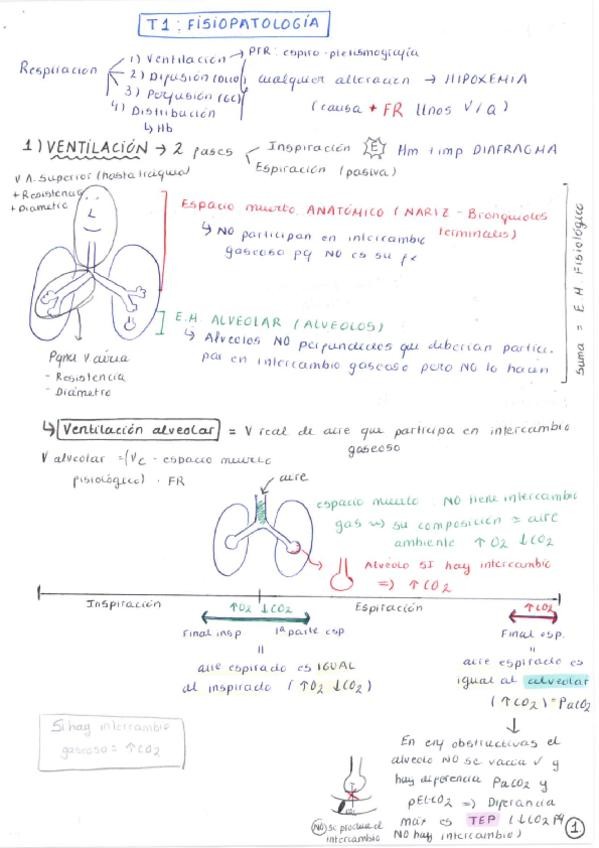 T1: FISIOPATOLOGÍA
Respiración
1) Ventilación → PFR: espiro-pletismografía
2) Difusión (DLCO)
3) Perfusión (GC)
4) Distribución
↳ Hb
cualquier alteración → HIPOXEMIA
(causa + FR llnos V/Q)
1) VENTILACIÓN → 2 fases
Inspiración E Hm + imp DIAFRAGMA
Espiración (pasiva)
V A. Superior (hasta tráquea)
+ Resistencia
+ Diametro
Espacio muerto ANATÓMICO (NARIZ - Bronquiolos
terminales)
↳ NO participan en intercambio
gaseoso pq NO es su fx
E.M. ALVEOLAR (ALVEOLOS)
↳ Alveolos NO perfundidos que deberían partici-
par en intercambio gaseoso pero NO lo hacen
Suma = E.M. Fisiológico
Pqña V aérea
- Resistencia
- Diámetro
↳ Ventilación alveolar = V real de aire que participa en intercambio
gaseoso
V alveolar = (Vc - espacio muerto
fisiológico) . FR
aire
espacio muerto. NO tiene intercambio
gas → su composición = aire
ambiente ↑O2 ↓CO2
Alveolo SI hay intercambio
=> ↑CO2
Inspiración
↑O2 ↓CO2
Espiración
↑CO2
Final insp
1ª parte esp
Final esp.
=
aire espirado es IGUAL
al inspirado (↑O2 ↓CO2)
=
aire espirado es
igual al alveolar
(↑CO2) = PaCO2
↓
Si hay intercambio
gaseoso = ↑CO2
En enf obstructivas el
alveolo NO se vacía V y
hay diferencia PaCO2 y
pEtCO2 => Diferencia
máx es TEP (↓CO2 pq
NO hay intercambio)
(NO) se produce el
1